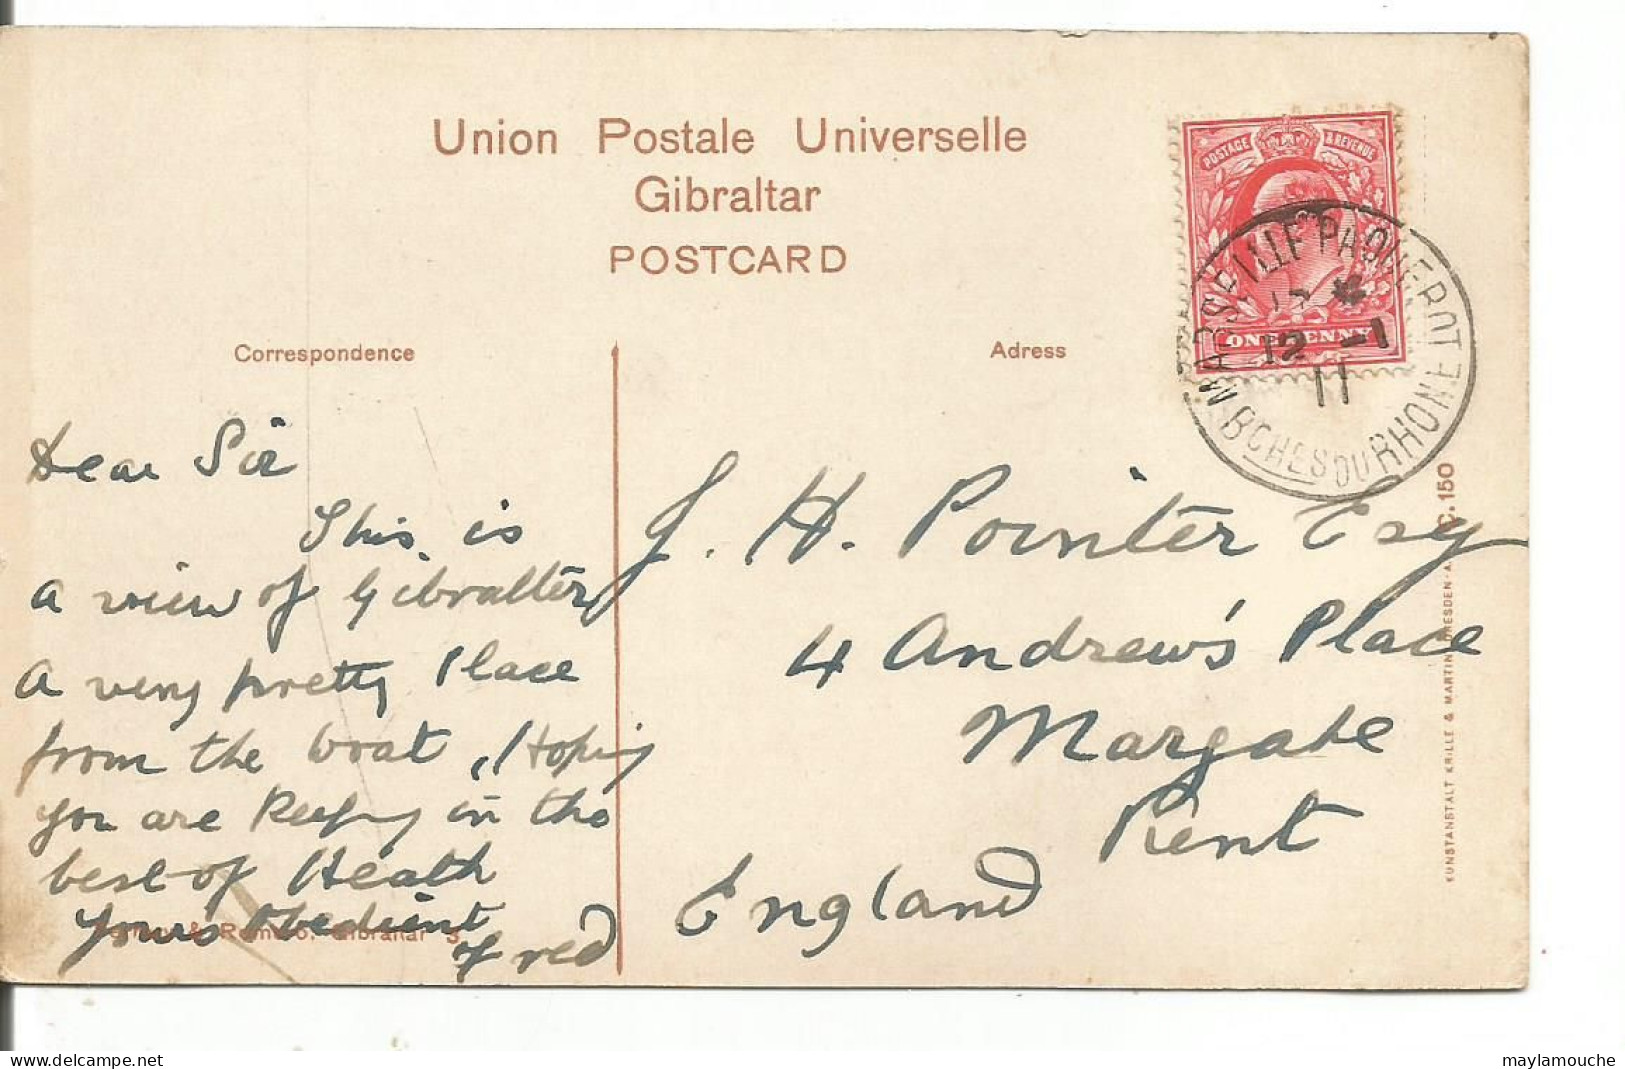 Union Postale Universelle
Gibraltar
POSTCARD
POSTAGE & REVENUE
ONE PENNY
MARSEILLE PAQUEBOT
12 -1
11
BCHES DU RHONE
Correspondence
Adress
Dear Sir
This is
a view of Gibralter
a very pretty place
from the boat, Hoping
you are keeping in the
best of Heath
yours Obedient
Fred
J. H. Pointer Esq
4 Andrew's Place
Margate
Kent
England
C. 150
KUNSTANSTALT KRILLE & MARTIN, DRESDEN-A.
& Romero, Gibraltar 3
maylamouche